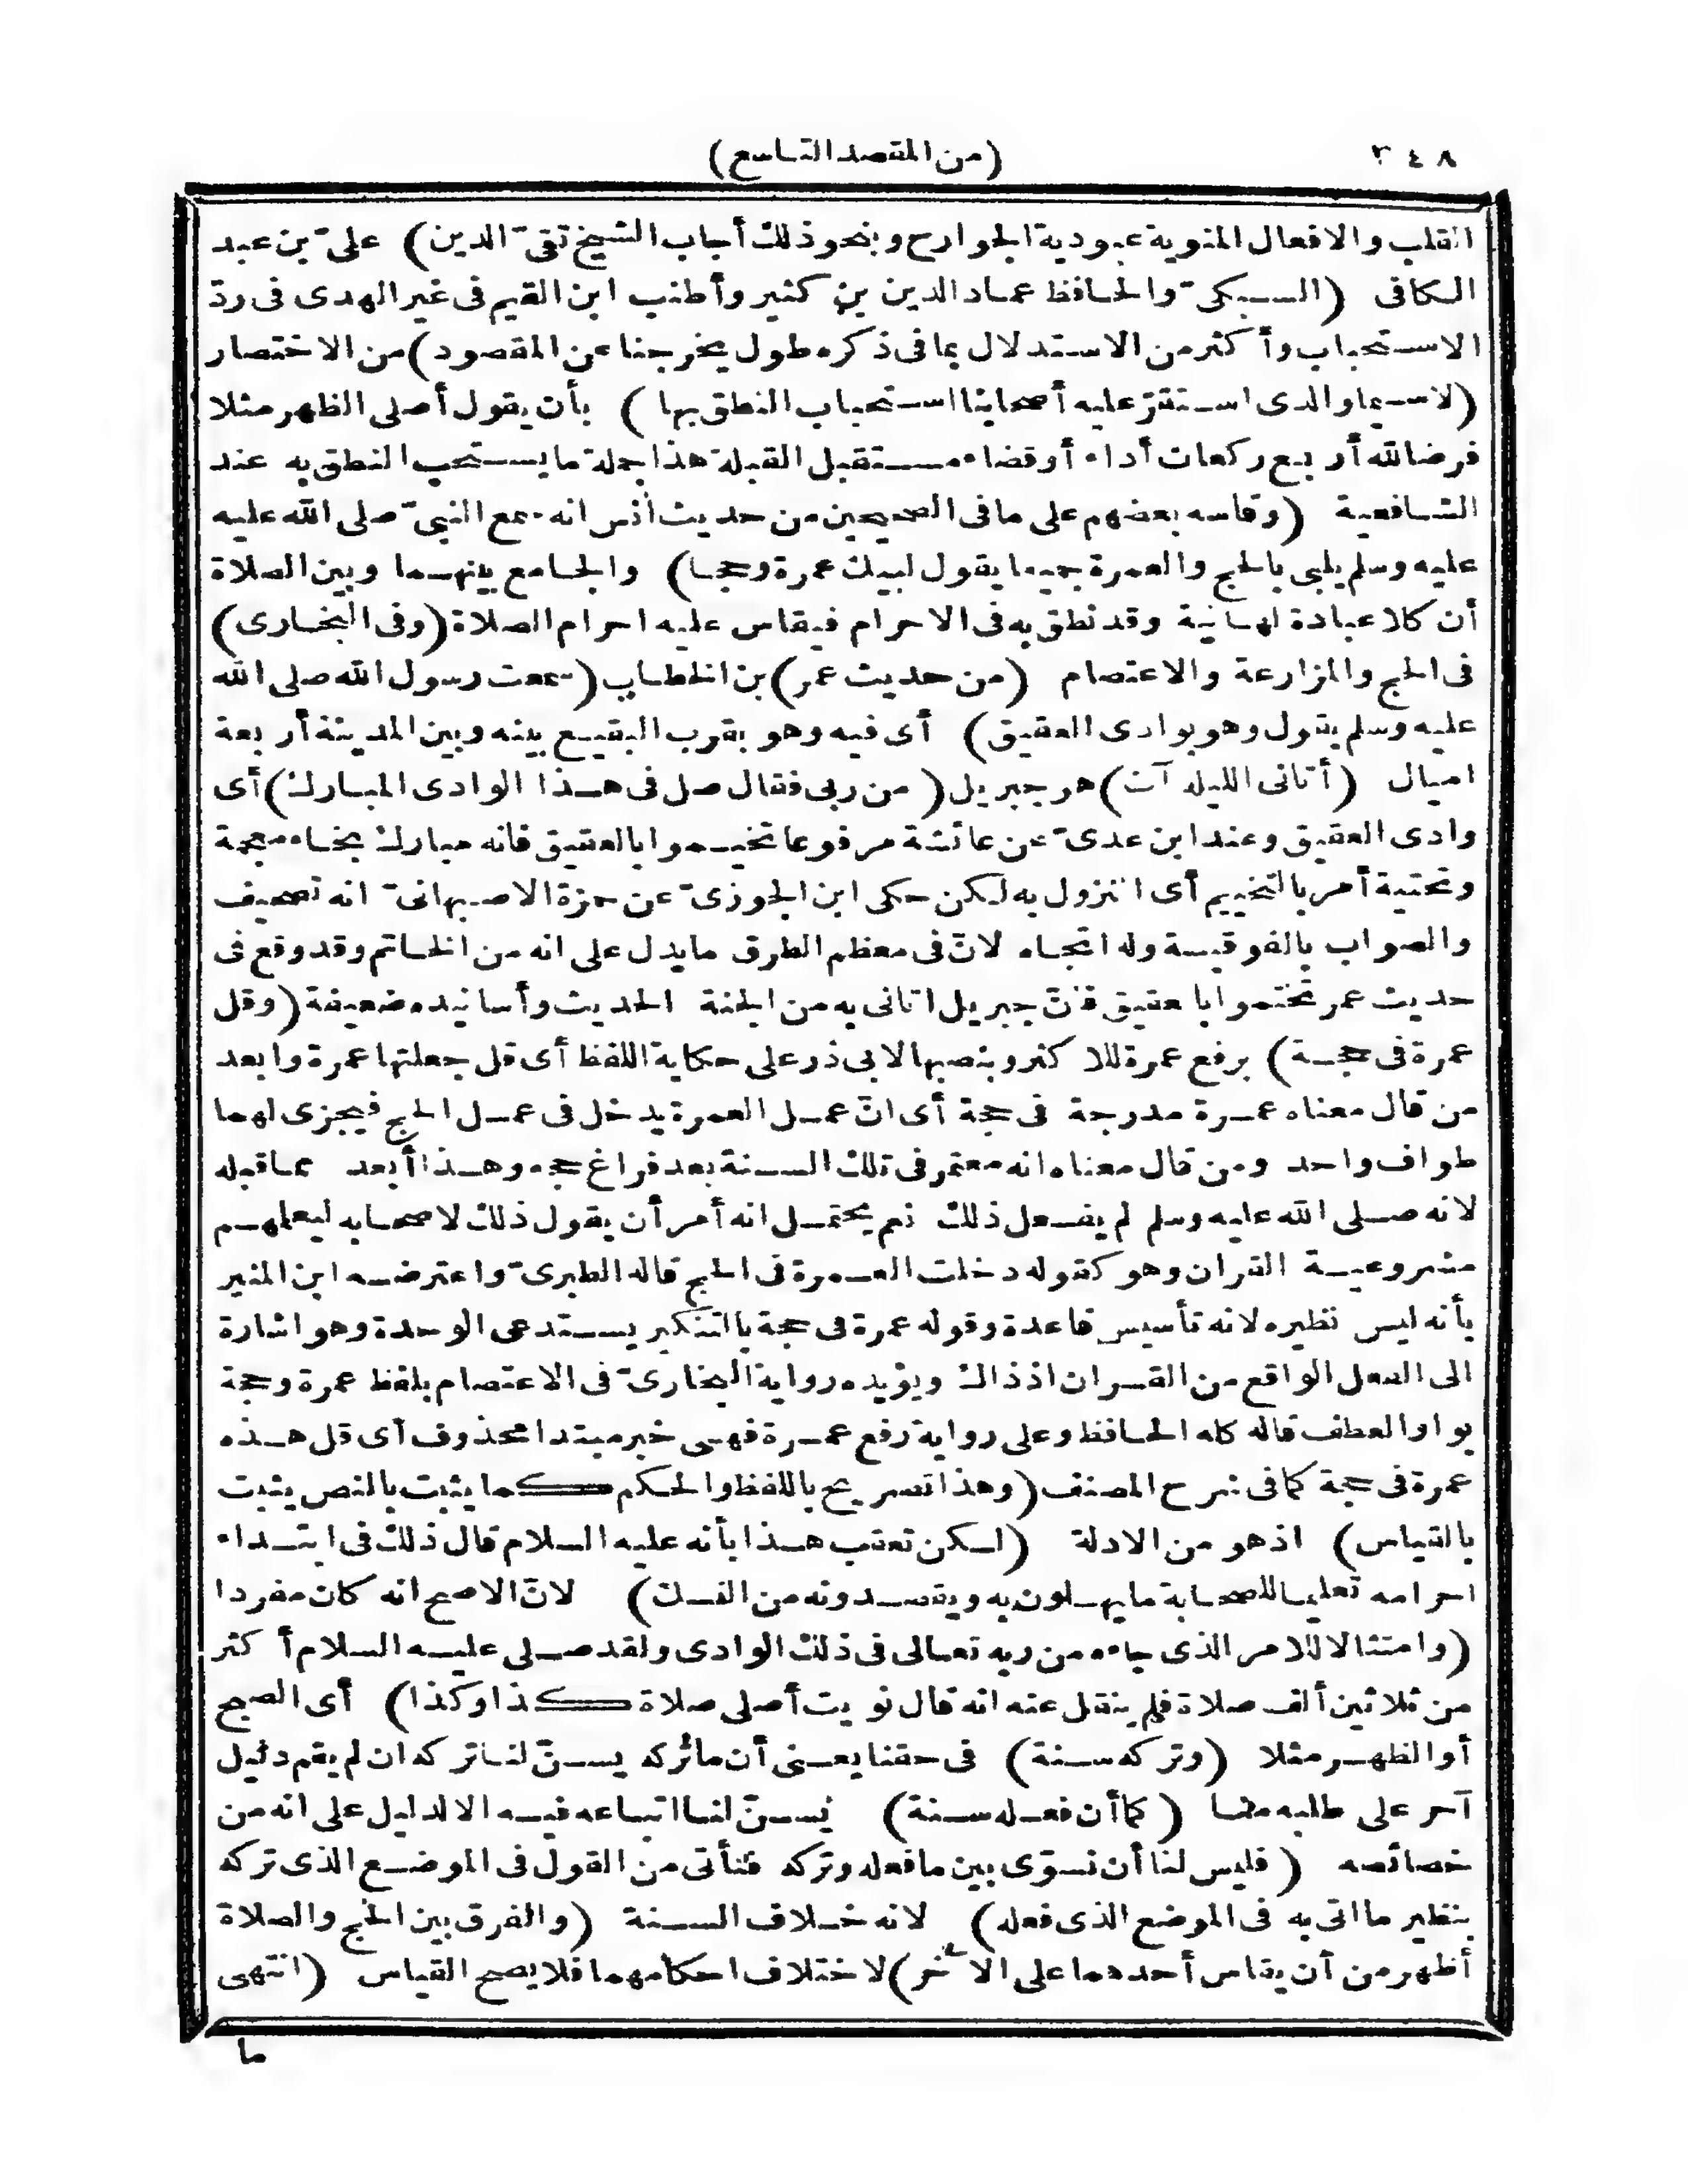 ٣٤٨
(من المقصد التاسع)
القلب والافعال المنوية عبودية الجوارح وبنحو ذلك أجاب الشيخ تقىّ الدين) علىّ بن عبد
الكافى (السبكىّ والحافظ عماد الدين بن كثير وأطنب ابن القيم فى غير الهدى فى ردّ
الاستحباب وأكثر من الاستدلال بما فى ذكره طول يخرجنا عن المقصود) من الاختصار
(لاسيما والذى استقرّ عليه أصحابنا استحباب النطق بها) بأن يقول أصلى الظهر مثلا
فرضا لله أربع ركعات أداء أو قضاء مستقبل القبلة هذا جملة ما يستحب النطق به عند
الشافعية (وقاسه بعضهم على ما فى الصحيحين من حديث أنس انه سمع النبىّ صلى الله عليه
عليه وسلم يلبى بالحج والعمرة جميعا يقول لبيك عمرة وحجا) والجامع بينهما وبين الصلاة
أن كلا عبادة لها نية وقد نطق به فى الاحرام فيقاس عليه احرام الصلاة (وفى البخارى)
فى الحج والمزارعة والاعتصام (من حديث عمر) بن الخطاب (سمعت رسول الله صلى الله
عليه وسلم يقول وهو بوادى العقيق) أى فيه وهو بقرب البقيع بينه وبين المدينة أربعة
اميال (أتانى الليلة آت) هو جبريل (من ربى فقال صل فى هذا الوادى المبارك) أى
وادى العقيق وعند ابن عدىّ عن عائشة مرفوعا تخيموا بالعقيق فانه مبارك بخاء معجمة
وتحتية أمر بالتخييم أى النزول به لكن حكى ابن الجوزىّ عن حمزة الاصبهانىّ انه تصحيف
والصواب بالفوقية وله اتجاه لانّ فى معظم الطرق ما يدل على انه من الخاتم وقد وقع فى
حديث عمر تختموا بالعقيق فانّ جبريل اتانى به من الجنة الحديث وأسانيده ضعيفة (وقل
عمرة فى حجة) برفع عمرة للاكثر وبنصبها لابى ذر على حكاية اللفظ أى قل جعلتها عمرة وابعد
من قال معناه عمرة مدرجة فى حجة أى انّ عمل العمرة يدخل فى عمل الحج فيجزى لهما
طواف واحد ومن قال معناه انه معتمر فى تلك السنة بعد فراغ حجه وهذا أبعد مما قبله
لانه صلى الله عليه وسلم لم يفعل ذلك نعم يحتمل انه أمر أن يقول ذلك لاصحابه ليعلمهم
مشروعية القران وهو كقوله دخلت العمرة فى الحج قاله الطبرىّ واعترضه ابن المنير
بأنه ليس نظيره لانه تأسيس قاعدة وقوله عمرة فى حجة بالتنكير يستدعى الوحدة وهو اشارة
الى الفعل الواقع من القران اذ ذاك ويؤيده رواية البخارىّ فى الاعتصام بلفظ عمرة وحجة
بواو العطف قاله كله الحافظ وعلى رواية رفع عمرة فهى خبر مبتدا محذوف أى قل هذه
عمرة فى حجة كما فى شرح المصنف (وهذا تصريح باللفظ والحكم كما يثبت بالنص يثبت
بالقياس) اذ هو من الادلة (لكن تعقب هذا بأنه عليه السلام قال ذلك فى ابتداء
احرامه تعليما للصحابة ما يهلون به ويقصدونه من النسك) لانّ الاصح انه كان مفردا
(وامتثالا للامر الذى جاءه من ربه تعالى فى ذلك الوادى ولقد صلى عليه السلام أكثر
من ثلاثين ألف صلاة فلم ينقل عنه انه قال نويت أصلى صلاة كذا وكذا) أى الصبح
أو الظهر مثلا (وتركه سنة) فى حقنا يعنى أن ماتركه يسنّ لنا تركه ان لم يقم دليل
آخر على طلبه منا (كما أن فعله سنة) يسنّ لنا اتباعه فيه الا لدليل على انه من
خصائصه (فليس لنا أن نسوّى بين ما فعله وتركه فنأتى من القول فى الموضع الذى تركه
بنظير ما اتى به فى الموضع الذى فعله) لانه خلاف السنة (والفرق بين الحج والصلاة
أظهر من أن يقاس أحدهما على الآخر) لاختلاف احكامهما فلا يصح القياس (انتهى
ما